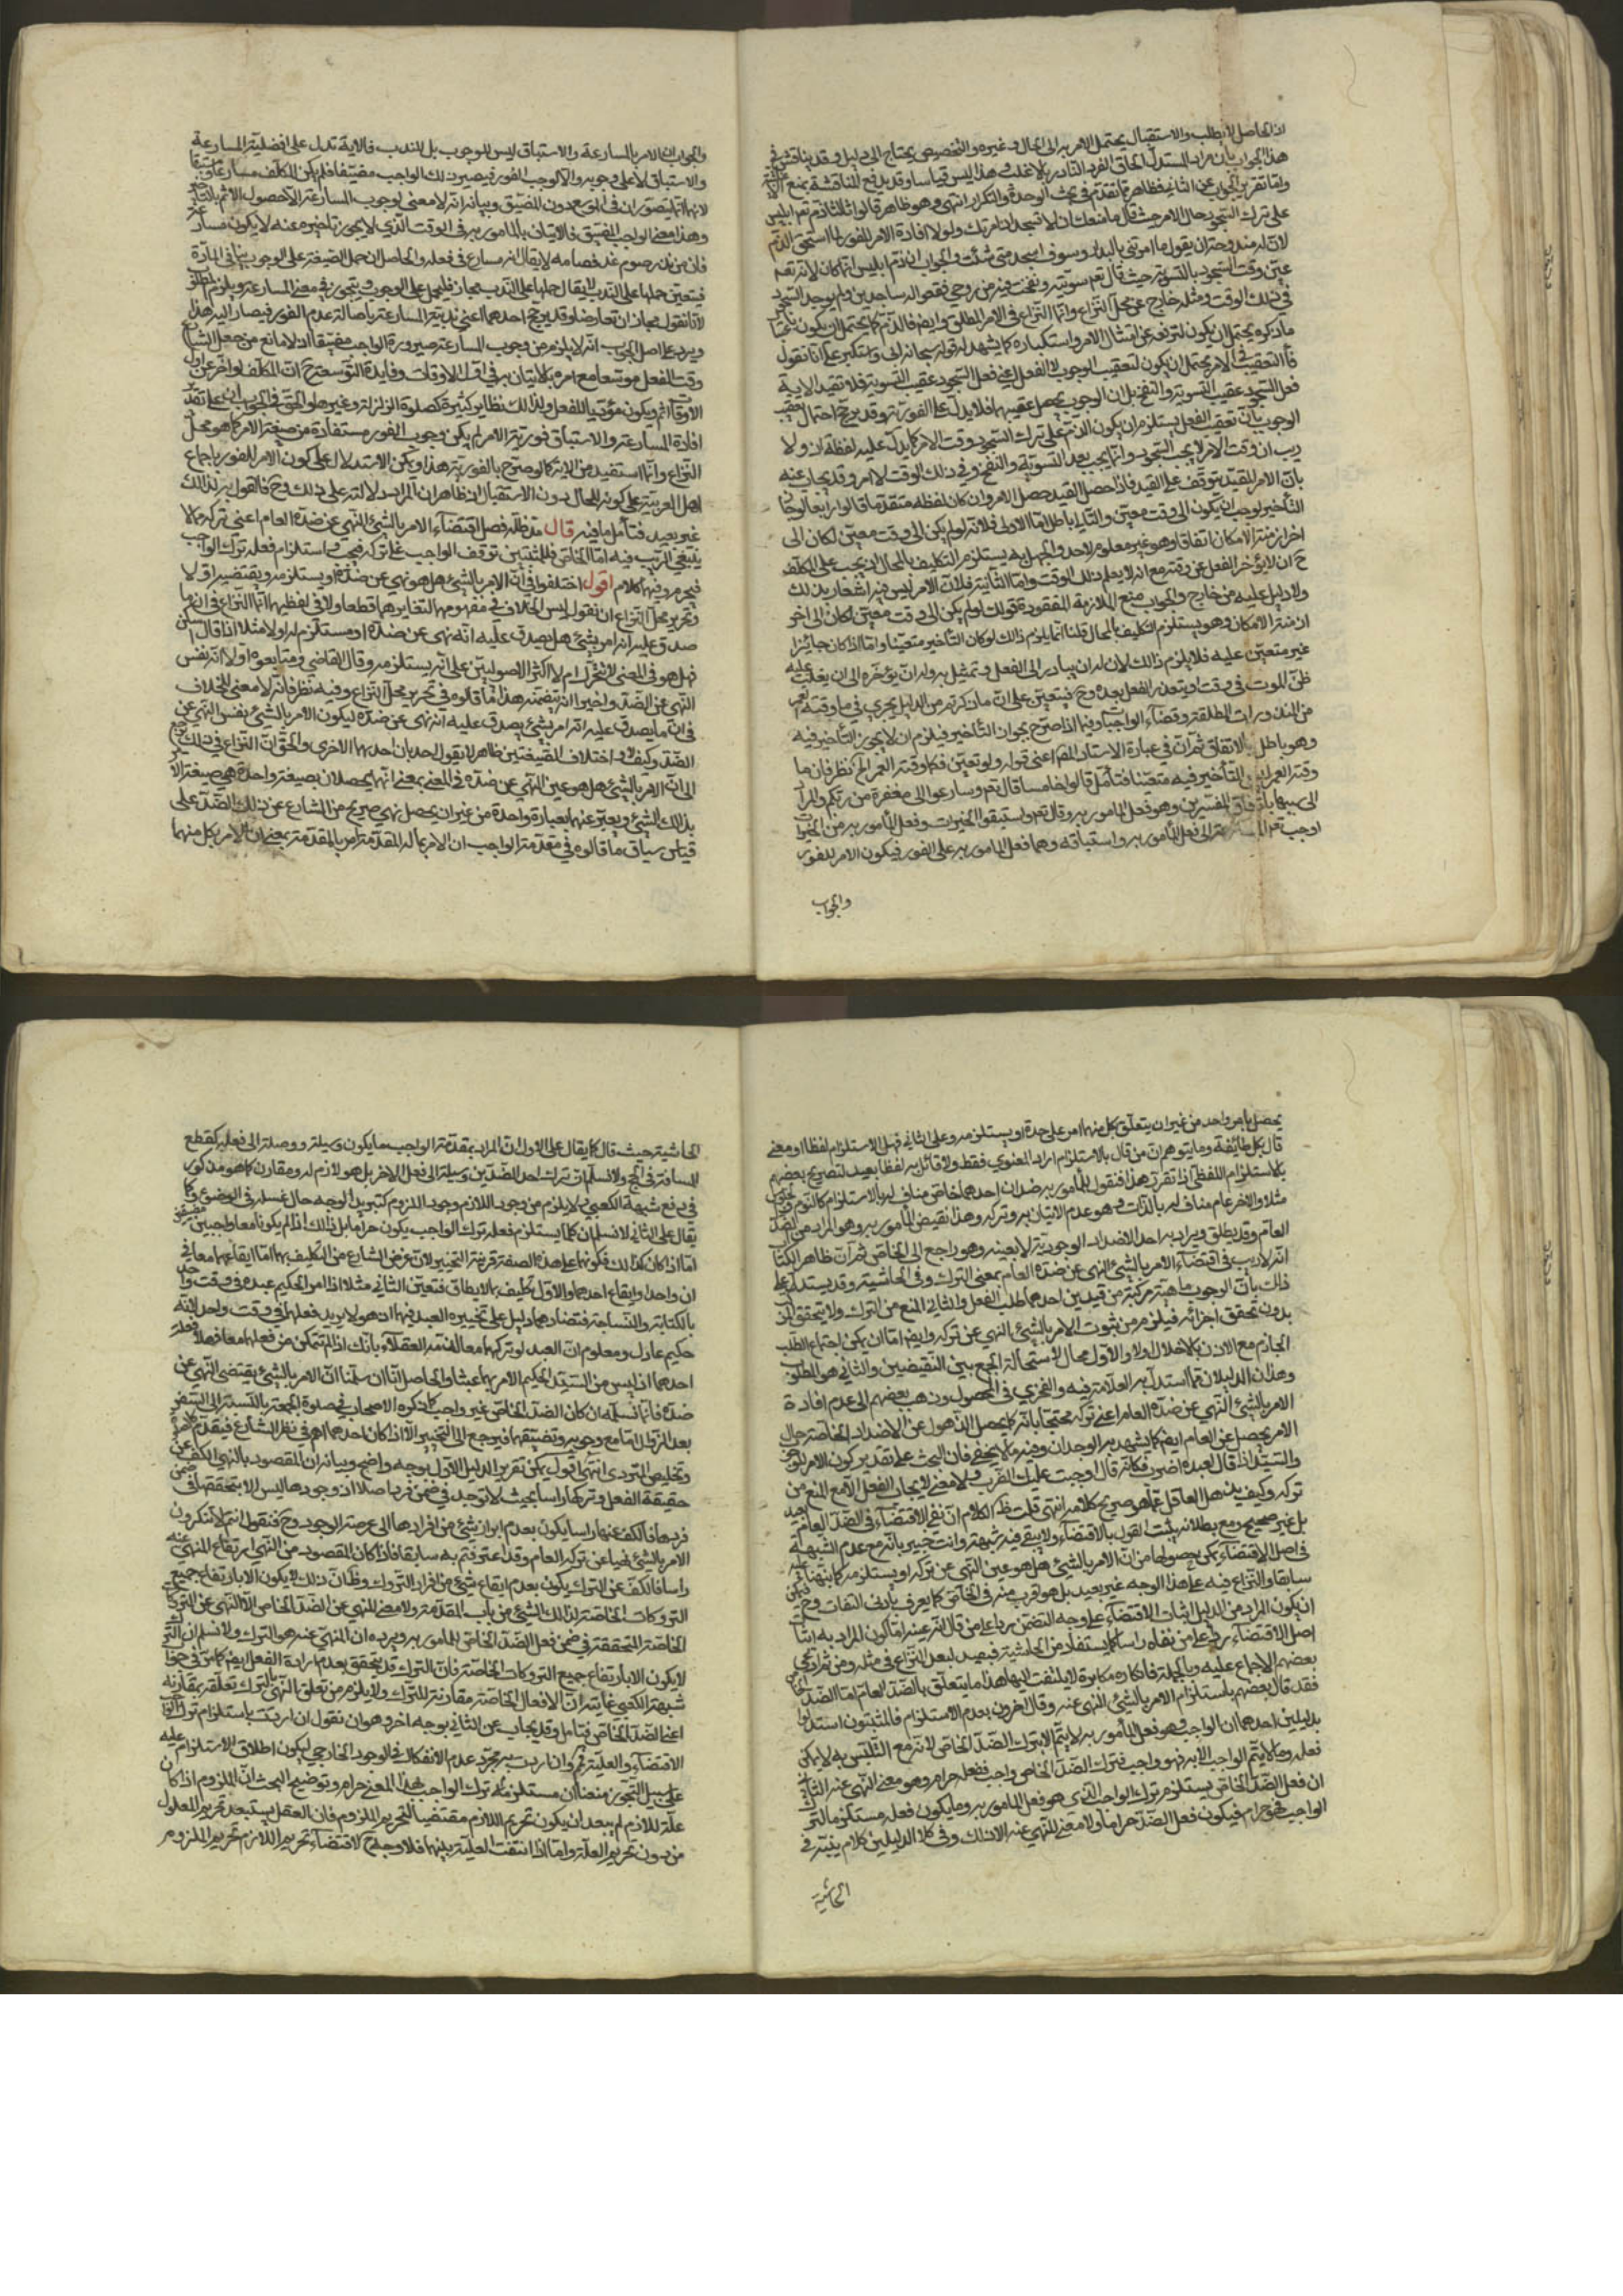 اذ الحاصل لا يطلب والاستقبال يحتمل الامر به الى الحال وغيره والتخصيص يحتاج الى دليل وقد يناقش في
هذا الجواب بان مراد المستدل الحاق الفرد النادر بالاغلب وهذا ليس قياسا وقد يدفع المناقشة بمنع
واما تقرير الجواب عن الثاني فظاهر مما تقدم في بحث الوحدة والتكرار انتهى وهو ظاهر قالوا ثالثا ذم تعم ابليس
على ترك السجود حال الامر حيث قال ما منعك ان لا تسجد اذ امرتك ولولا افادة الامر للفور لما استحق الذم
لانه له مندوحة ان يقول ما امرتني بالبدار وسوف اسجد متى شئت والجواب ان ذم ابليس انما كان لانه تعم
عين وقت السجود بالتسوية حيث قال تعم سويته ونفخت فيه من روحي فقعوا له ساجدين ولم يوجد السجود
في ذلك الوقت ومثله خارج عن محل النزاع وانما النزاع في الامر المطلق وايض فالذم كما يحتمل ان يكون
ما ذكره يحتمل ان يكون لترفعه عن امتثال الامر واستكباره كما يشهد له قوله سبحانه ابى واستكبر على انا نقول
فا التعقيب في الامر يحتمل ان يكون لتعقيب الوجوب لا الفعل اعني فعل السجود عقيب التسوية فلا تفيد الاية
فعل السجود عقيب التسوية والنفخ بل ان الوجوب يحصل عقيبهما فلا يدل على الفورية وقد يرجح احتمال تعقيب
الوجوب بان تعقيب الفعل يستلزم ان يكون الذم على ترك السجود وقت الامر كما يدل عليه لفظة اذ ولا
ريب ان وقت الامر لا يجب السجود وانما يجب بعد التسوية والنفخ وفي ذلك الوقت لا امر وقد يجاب عنه
بان الامر المقيد يتوقف على القيد فاذا حصل القيد حصل الامر وان كان لفظه متقدما قالوا رابعا لو جاز
التاخير لوجب ان يكون الى وقت معين والتالي باطل اما الاولى فلانه لو لم يكن الى وقت معين لكان الى
اخر ازمنة الامكان اتفاقا وهو غير معلوم لاحد والجهل به يستلزم التكليف بالمحال اذ يجب على المكلف
ح ان لا يؤخر الفعل عن وقته مع انه لا يعلم ذلك الوقت واما الثانية فلان الامر ليس فيه اشعار بذلك
ولا دليل عليه من خارج والجواب منع الملازمة المفقودة قولك ولم يكن الى وقت معين لكان الى اخر
ازمنة الامكان وهو يستلزم التكليف بالمحال قلنا انما يلزم ذلك لو كان التاخير متعينا واما اذا كان جائزا
غير متعين عليه فلا يلزم ذلك لان له ان يبادر الى الفعل وتمثيل به وله ان يؤخره الى ان يغلب عليه
ظن الموت في وقت او يتعذر الفعل بعده وح فيتعين على ان ما ذكرته من الدليل يجري في ما وقته العمر
من النذورات المطلقة وقضاء الواجبات وفيما اذا صرح بجواز التاخير فيلزم ان لا يجوز التاخير فيه
وهو باطل بالاتفاق ثم ان في عبارة الاستاد المعم اعني قوله ولو تعين فكلما وقته العمر الخ نظر فان ما
وقته العمر التاخير فيه متعينا فتامل قالوا خامسا قال تعم وسارعوا الى مغفرة من ربكم والمراد
الى سببها باتفاق المفسرين وهو فعل المامور به وقال تعم واستبقوا الخيرات وفعل المامور به من الخيرات
اوجب تعم المسارعة الى فعل المامور به واستباقه وهما فعل المامور به على الفور فيكون الامر للفور
والجواب
والجواب ان الامر بالمسارعة والاستباق ليس للوجوب بل للندب فالاية تدل على افضلية المسارعة
والاستباق لا على وجوبه والا لوجب الفور فيصير ذلك الواجب مضيقا فلم يكن المكلف مسارعا ومستبقا
لانهما انما يتصوران في الموسع دون المضيق وبيانه انه لا معنى لوجوب المسارعة الا حصول الاثم بالتاخير
وهذا معنى الواجب المضيق فالاتيان بالمامور به في الوقت الذي لا يجوز تاخيره عنه لا يكون مسارعة
فان من نذر صوم غد فصامه لا يقال انه مسارع في فعله والحاصل ان حمل الصيغة على الوجوب ينافي المادة
فيتعين حملها على الندب لا يقال حملها على الندب مجاز فليحمل على الوجوب ويتجوز في معنى المسارعة ويلزم المطلوب
لانا نقول مجازان تعارضا وقد يرجح احدهما اعني ندبية المسارعة باصالة عدم الفور فيصار اليه هذا
ويرد على اصل الجواب انه لا يلزم من وجوب المسارعة صيرورة الواجب مضيقا اذ لا مانع من جعل الشارع
وقت الفعل موسعا مع امره بالاتيان به في اقل الاوقات وفايدة التوسعة ح ان المكلف لو اخر عن اول
الاوقات اثم ويكون مؤديا للفعل ولذلك نظاير كثيرة كصلوة الزلزلة وغيرها والحق في الجواب ان على تقدير
افادة المسارعة والاستباق فورية الامر لم يكن وجوب الفور مستفادة من صيغة الامر كما هو محل
النزاع وانما استفيد من الاية كما لو صرح بالفورية هذا ويمكن الاستدلال على كون الامر للفور باجماع
اهل العربية على كونه للحال دون الاستقبال اذ ظاهر ان المراد دلالته على ذلك وح فالقول به لذلك
غير بعيد فتامل ما فيه قال مد ظله فصل اقتضاء الامر بالشيئ النهي عن ضده العام اعني تركه مما لا
ينبغي الريب فيه اما الخاص فللمثبتين توقف الواجب على تركه فيجب واستلزام فعله ترك الواجب
فيحرم وفيهما كلام اقول اختلفوا في ان الامر بالشيئ هل هو نهي عن ضده او يستلزمه ويقتضيه او لا
وتحرير محل النزاع ان نقول ليس الخلاف في مفهومهما التغايرهما قطعا ولا في لفظيهما انما النزاع في ان ما
صدق عليه انه امر بشيئ هل يصدق عليه انه نهى عن ضده او مستلزم له او لا مثلا اذا قال اسكن
فهل هو في المعنى لا تتحرك ام لا اكثر الاصوليين على انه يستلزمه وقال القاضي ومتابعوه اولا انه نفس
النهي عن الضد واخيرا انه يتضمنه هذا ما قالوه في تحرير محل النزاع وفيه نظر فانه لا معنى للخلاف
في ان ما يصدق عليه انه امر بشيئ يصدق عليه انه نهى عن ضده ليكون الامر بالشيئ نفس النهي عن
الضد وكيف لا واختلاف الصيغتين ظاهر لا يقول احد بان احدهما الاخرى والحق ان النزاع في ذلك يرجع
الى ان الامر بالشيئ هل هو عين النهي عن ضده في المعنى بمعنى انهما يحصلان بصيغة واحدة هي صيغة الامر
بذلك الشيئ ويعبر عنهما بعبارة واحدة من غير ان يحصل نهي صريح من الشارع عن ذلك الضد على
قياس سياق ما قالوه في مقدمة الواجب ان الامر بما له المقدمة امر بالمقدمة بمعنى ان الامر بكل منهما
يحصل بامر واحد من غير ان يتعلق بكل منهما امر على حدة او يستلزمه وعلى الثاني فهل الاستلزام لفظا او معنى
قال بكل طايفة وما يتوهم ان من قال بالاستلزام اراد المعنوي فقط ولا قائل به لفظا بعيد لتصريح بعضهم
بالاستلزام اللفظي اذا تقرر هذا فنقول للمامور به ضدان احدهما خاص مناف له بالاستلزام كالنوم
مثلا والاخر عام مناف له بالذات وهو عدم الاتيان به وتركه وهذا نقيض المامور به وهو المراد من الضد
العام وقد يطلق ويراد به احد الاضداد الوجودية لا بعينه وهو راجع الى الخاص ثم ان ظاهر الكتاب
انه لا ريب في اقتضاء الامر بالشيئ النهي عن ضده العام بمعنى الترك وفي الحاشية وقد يستدل على
ذلك بان الوجوب ماهية مركبة من قيدين احدهما طلب الفعل والثاني المنع من الترك ولا يتحقق المركب
بدون تحقق اجزائه فيلزم من ثبوت الامر بالشيئ النهي عن تركه وايض اما ان يمكن اجتماع الطلب
الجازم مع الاذن بالاخلال اولا والاول محال لاستحالة الجمع بين النقيضين والثاني هو المطلوب
وهذان الدليلان مما استدل به العلامة فيه والفخري في المحصول وذهب بعضهم الى عدم افادة
الامر بالشيئ النهي عن ضده العام اعني تركه محتجا بانه كما يحصل الذهول عن الاضداد الخاصة حال
الامر يحصل عن العام ايضا كما يشهد به الوجدان وفيه ما لا يخفى فان البحث على تقدير كون الامر للوجوب
والسيد اذا قال لعبده اضرب فكانه قال اوجبت عليك الضرب ولا معنى لايجاب الفعل الا مع المنع من
تركه وكيف يذهل العاقل عما هو صريح كلامه انتهى قلت ظاهر الكلام ان نفي الاقتضاء في الضد العام
بل غير صحيح ومع بطلانه يثبت القول بالاقتضاء ولا يبقى فيه شبهة وانت خبير بانه مع عدم الشبهة
في اصل الاقتضاء يمكن حصولها من ان الامر بالشيئ هل هو عين النهي عن تركه او يستلزمه كما نبهنا عليه
سابقا والنزاع فيه على هذا الوجه غير بعيد بل هو اقرب منه في الخاص كما يعرف بادنى التفات وح فيمكن
ان يكون المراد من الدليل اثبات الاقتضاء على وجه التضمن ردا على من قال انه عينه اما كون المراد به اثبات
اصل الاقتضاء رد على من نفاه راسا كما يستفاد من الحاشية فبعيد لبعد النزاع في مثله ومن ثم ادعى
بعضهم الاجماع عليه وبالجملة فانكاره مكابرة لا يلتفت اليها هذا ما يتعلق بالضد العام اما الضد الخاص
فقد قال بعضهم باستلزام الامر بالشيئ النهي عنه وقال اخرون بعدم الاستلزام فالمثبتون استدلوا
بدليلين احدهما ان الواجب وهو فعل المامور به لا يتم الا بترك الضد الخاص لانه مع التلبس به لا يمكن
فعله وما لا يتم الواجب الا به فهو واجب فترك الضد الخاص واجب ففعله حرام وهو معنى النهي عنه الثاني
ان فعل الضد الخاص يستلزم ترك الواجب الذي هو فعل المامور به وما يكون فعله مستلزما لترك
الواجب فهو حرام فيكون فعل الضد حراما ولا معنى للنهي عنه الا ذلك وفي كلا الدليلين كلام ينبه في
الحاشية
الحاشية حيث قال كما يقال على الاول ان المراد بمقدمة الواجب ما يكون وسيلة ووصلة الى فعله كقطع
المسافة في الحج ولا نسلم ان ترك احد الضدين وسيلة الى فعل الاخر بل هو لازم له ومقارن كما هو مذكور
في دفع شبهة الكعبي ولا يلزم من وجوب اللازم وجوب الملزوم كتبريد الوجه حال غسله في الوضوء وكما
يقال على الثاني لا نسلم ان كلما يستلزم فعله ترك الواجب يكون حراما بل ذلك اذا لم يكونا معا واجبين
اما اذا كان كذلك فكونهما على هذه الصفة قرينة التخيير لان غرض الشارع من التكليف بهما اما ايقاعهما معا في
ان واحد او ايقاع احدهما والاول تكليف بما لا يطاق فتعين الثاني مثلا اذا امر الحكيم عبده في وقت واحد
بالكتابة والنساجة فتضادهما دليل على تخييره العبد فيهما اذ هو لا يريد فعلهما في وقت واحد لانه
حكيم عادل ومعلوم ان العبد لو تركهما معا لذمه العقلاء بانك اذا لم تتمكن من فعلهما معا فهلا فعلت
احدهما اذ ليس من السيد الحكيم الامر بهما عبثا والحاصل انا ان سلمنا ان الامر بالشيئ يقتضي النهي عن
ضده فانما نسلمه ان كان الضد الخاص غير واجب كما ذكره الاصحاب في صلوة الجمعة بالنسبة الى السفر
بعد الزوال اما مع وجوبه وتضيقهما فيرجع الى التخيير الا اذا كان احدهما اهم في نظر الشارع فيقدم
وتخليص التردي انتهى اقول يمكن تقرير الدليل الاول بوجه واضح وبيانه ان المقصود بالنهي الكف عن
حقيقة الفعل وتركها راسا بحيث لا توجد في ضمن فرد اصلا اذ وجودها ليس الا بتحققها في ضمن
فردها فالكف عنها راسا يكون بعدم ابراز شيئ من افرادها الى عرصة الوجود وح فنقول انتم لا تنكرون
الامر بالشيئ نهيا عن تركه العام وقد اعترفتم به سابقا فاذا كان المقصود من النهي ارتفاع المنهي عنه
راسا فالكف عن الترك يكون بعدم ايقاع شيئ من افراد التروك وظاهر ان ذلك لا يكون الا بارتفاع جميع
التروكات الخاصة لذلك الشيئ من باب المقدمة ولا معنى للنهي عن الضد الخاص الا النهي عن التروكات
الخاصة المتحققة في ضمن فعل الضد الخاص للمامور به ويرده ان المنهي عنه هو الترك ولا نسلم ان الترك
لا يكون الا بارتفاع جميع التروكات الخاصة فان الترك قد يتحقق بعدم ارادة الفعل ايضا كما مر في جواب
شبهة الكعبي غايته ان الافعال الخاصة مقارنة للترك ولا يلزم من تعلق النهي بالترك تعلقه بمقارنه
اعني الضد الخاص فتامل وقد يجاب عن الثاني بوجه اخر وهو ان نقول ان اردت باستلزام ترك الواجب
الاقتضاء والعلية ثم وان اردت به مجرد عدم الانفكاك في الوجود الخارجي ليكون اطلاق الاستلزام عليه
على سبيل التجوز منعنا ان مستلزم ترك الواجب بهذا المعنى حرام وتوضيح البحث ان الملزوم اذا كان
علة للازم لم يبعد ان يكون تحريم اللازم مقتضيا لتحريم الملزوم فان العقل يستبعد تحريم المعلول
من دون تحريم العلة واما اذا انتفت العلية بينهما فلا وجه ح لاقتضاء تحريم اللازم تحريم الملزوم